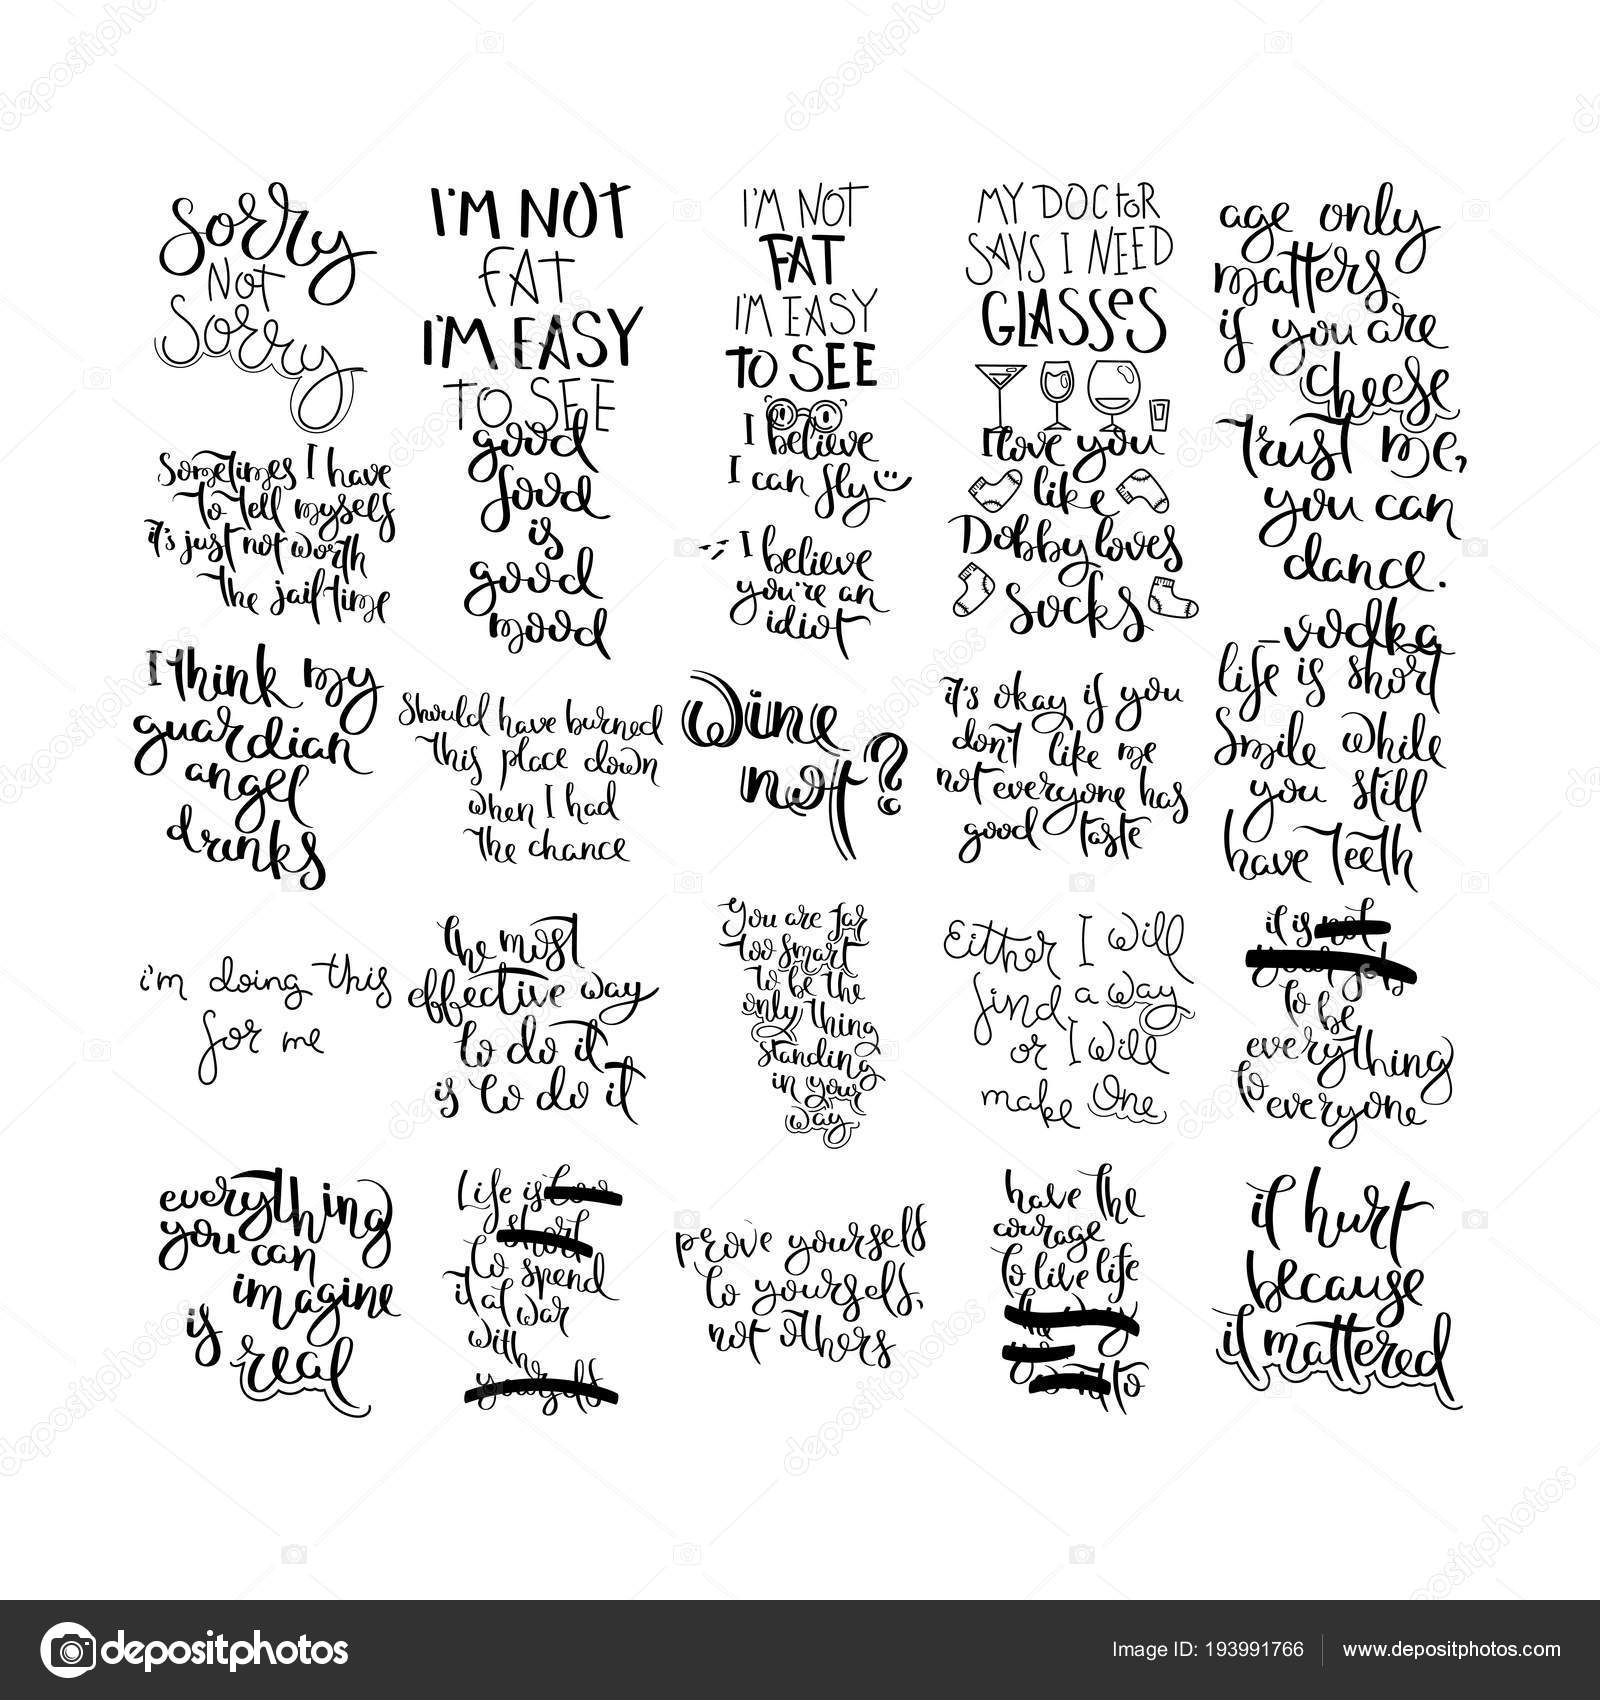 Sorry
NOT
Sorry
I'M NOT
FAT
I'M EASY
TO SEE
I'M NOT
FAT
I'M EASY
TO SEE
MY DOCTOR
SAYS I NEED
GLASSES
age only
matters
if you are
cheese
Sometimes I have
to tell myself
it's just not worth
the jail time
good
food
is
good
mood
I believe
I can fly
I believe
you're an
idiot
I love you
like
Dobby loves
socks
trust me,
you can
dance.
-vodka
I think my
guardian
angel
drinks
Should have burned
this place down
when I had
the chance
Wine
not?
it's okay if you
don't like me
not everyone has
good taste
life is short
Smile while
you still
have teeth
i'm doing this
for me
the most
effective way
to do it
is to do it
You are far
too smart
to be the
only thing
standing
in your
way
Either I will
find a way
or I will
make One
it is not
your job
to be
everything
to everyone
everything
you can
imagine
is
real
Life is too
short
to spend
it at war
with
yourself
prove yourself
to yourself,
not others
have the
courage
to live life
the way
to
it hurt
because
it mattered
depositphotos
Image ID: 193991766
www.depositphotos.com